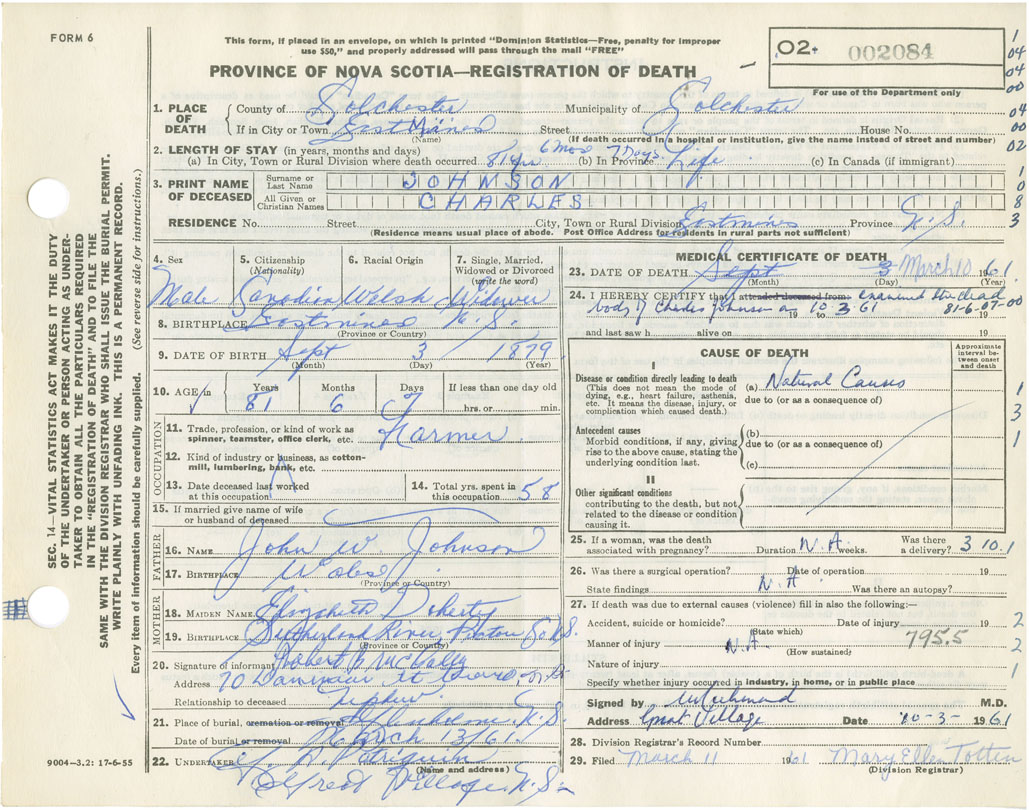 FORM 6
This form, if placed in an envelope, on which is printed "Dominion Statistics—Free, penalty for improper
use $50," and properly addressed will pass through the mail "FREE"
PROVINCE OF NOVA SCOTIA—REGISTRATION OF DEATH
02+ 002084
For use of the Department only
1. PLACE OF DEATH
County of Colchester Municipality of Colchester
If in City or Town East Mines Street House No.
(Name) (If death occurred in a hospital or institution, give the name instead of street and number)
2. LENGTH OF STAY (in years, months and days)
(a) In City, Town or Rural Division where death occurred 81 yrs 6 mos 7 Days (b) In Province Life (c) In Canada (if immigrant)
3. PRINT NAME OF DECEASED
Surname or Last Name JOHMSON
All Given or Christian Names CHARLES
RESIDENCE No. Street City, Town or Rural Division Eastmines Province N.S.
(Residence means usual place of abode. Post Office Address for residents in rural parts not sufficient)
4. Sex 5. Citizenship (Nationality) 6. Racial Origin 7. Single, Married, Widowed or Divorced (write the word)
Male Canadian Welsh Widower
8. BIRTHPLACE Eastmines N.S.
(Province or Country)
9. DATE OF BIRTH Sept 3 1879
(Month) (Day) (Year)
10. AGE Years Months Days If less than one day old
81 6 7 hrs. or min.
OCCUPATION
11. Trade, profession, or kind of work as spinner, teamster, office clerk, etc. Farmer
12. Kind of industry or business, as cotton-mill, lumbering, bank, etc.
13. Date deceased last worked at this occupation
14. Total yrs. spent in this occupation 58
15. If married give name of wife or husband of deceased
FATHER
16. NAME John W. Johnson
17. BIRTHPLACE
(Province or Country)
MOTHER
18. MAIDEN NAME Elizabeth Doherty
19. BIRTHPLACE Sutherland River, Co N.S.
(Province or Country)
20. Signature of informant Robert B McCully
Address 70 St N.S.
Relationship to deceased Nephew
21. Place of burial, cremation or removal Glenholme N.S.
Date of burial or removal March 13/61
22. UNDERTAKER
(Name and address)
Village N.S.
9004—3.2: 17-6-55
MEDICAL CERTIFICATE OF DEATH
23. DATE OF DEATH Sept 3 March 10 1961
(Month) (Day) (Year)
24. I HEREBY CERTIFY that I attended deceased from examined the dead
body of Charles Johnson on 19 10 to 3 61 81-6-07-00 19
and last saw h alive on 19
CAUSE OF DEATH
Approximate interval between onset and death
I
Disease or condition directly leading to death
(This does not mean the mode of dying, e.g., heart failure, asthenia, etc. It means the disease, injury, or complication which caused death.)
(a) Natural Causes
due to (or as a consequence of)
Antecedent causes
Morbid conditions, if any, giving rise to the above cause, stating the underlying condition last.
(b)
due to (or as a consequence of)
(c)
II
Other significant conditions
contributing to the death, but not related to the disease or condition causing it.
25. If a woman, was the death associated with pregnancy? Duration N.A. weeks. Was there a delivery? 3 10.1
26. Was there a surgical operation? Date of operation 19
State findings N.A. Was there an autopsy?
27. If death was due to external causes (violence) fill in also the following:—
Accident, suicide or homicide? Date of injury 19
(State which)
Manner of injury N.A. 795.5
(How sustained)
Nature of injury
Specify whether injury occurred in industry, in home, or in public place
Signed by M.D.
Address Great Village Date 10-3- 1961
28. Division Registrar's Record Number
29. Filed March 11 1961 Mary Ellen Totten
(Division Registrar)
1
04
04
00
04
00
02
1
0
8
3
1
3
1
2
2
1
SEC. 14—VITAL STATISTICS ACT MAKES IT THE DUTY
OF THE UNDERTAKER OR PERSON ACTING AS UNDER-
TAKER TO OBTAIN ALL THE PARTICULARS REQUIRED
IN THE "REGISTRATION OF DEATH" AND TO FILE THE
SAME WITH THE DIVISION REGISTRAR WHO SHALL ISSUE THE BURIAL PERMIT.
WRITE PLAINLY WITH UNFADING INK. THIS IS A PERMANENT RECORD.
Every item of information should be carefully supplied. (See reverse side for instructions.)